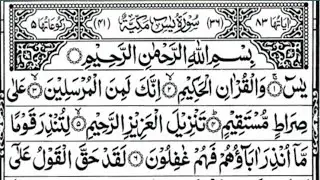 اٰیاتُهَا ۸۳ (۳۶) سُوْرَةُ یٰسٓ مَكِّیَّةٌ (۴۱) رُكُوْعَاتُهَا ۵
بِسْمِ اللّٰهِ الرَّحْمٰنِ الرَّحِیْمِ
یٰسٓ ۚ﴿۱﴾ وَالْقُرْاٰنِ الْحَكِیْمِ ۙ﴿۲﴾ اِنَّكَ لَمِنَ الْمُرْسَلِیْنَ ۙ﴿۳﴾ عَلٰی
صِرَاطٍ مُّسْتَقِیْمٍ ؕ﴿۴﴾ تَنْزِیْلَ الْعَزِیْزِ الرَّحِیْمِ ۙ﴿۵﴾ لِتُنْذِرَ قَوْمًا
مَّاۤ اُنْذِرَ اٰبَآؤُهُمْ فَهُمْ غٰفِلُوْنَ ﴿۶﴾ لَقَدْ حَقَّ الْقَوْلُ عَلٰۤی